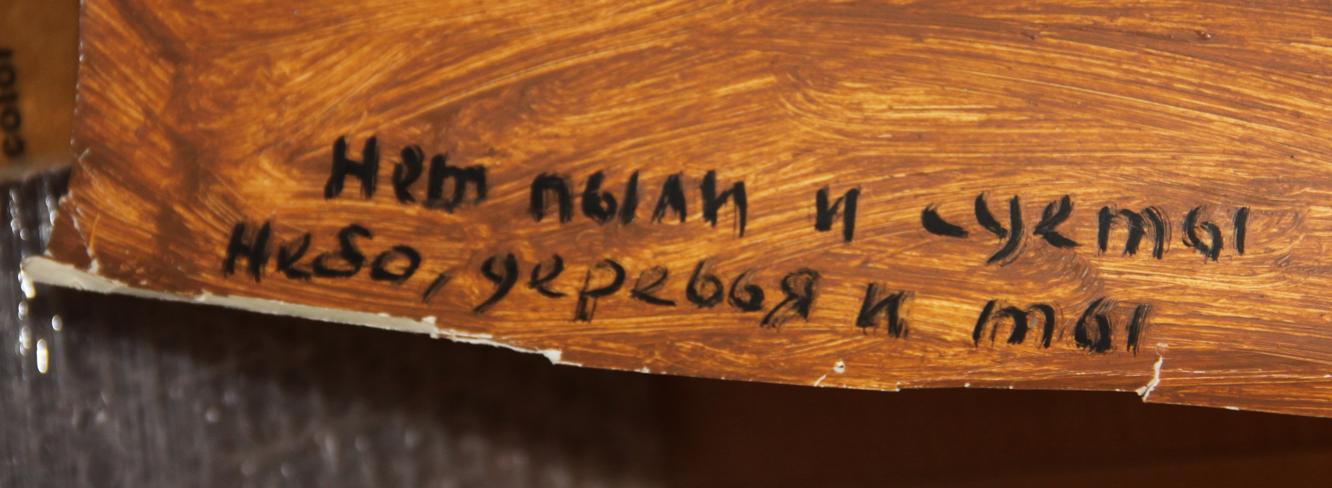 Нет пыли и суеты
Небо, деревья и ты